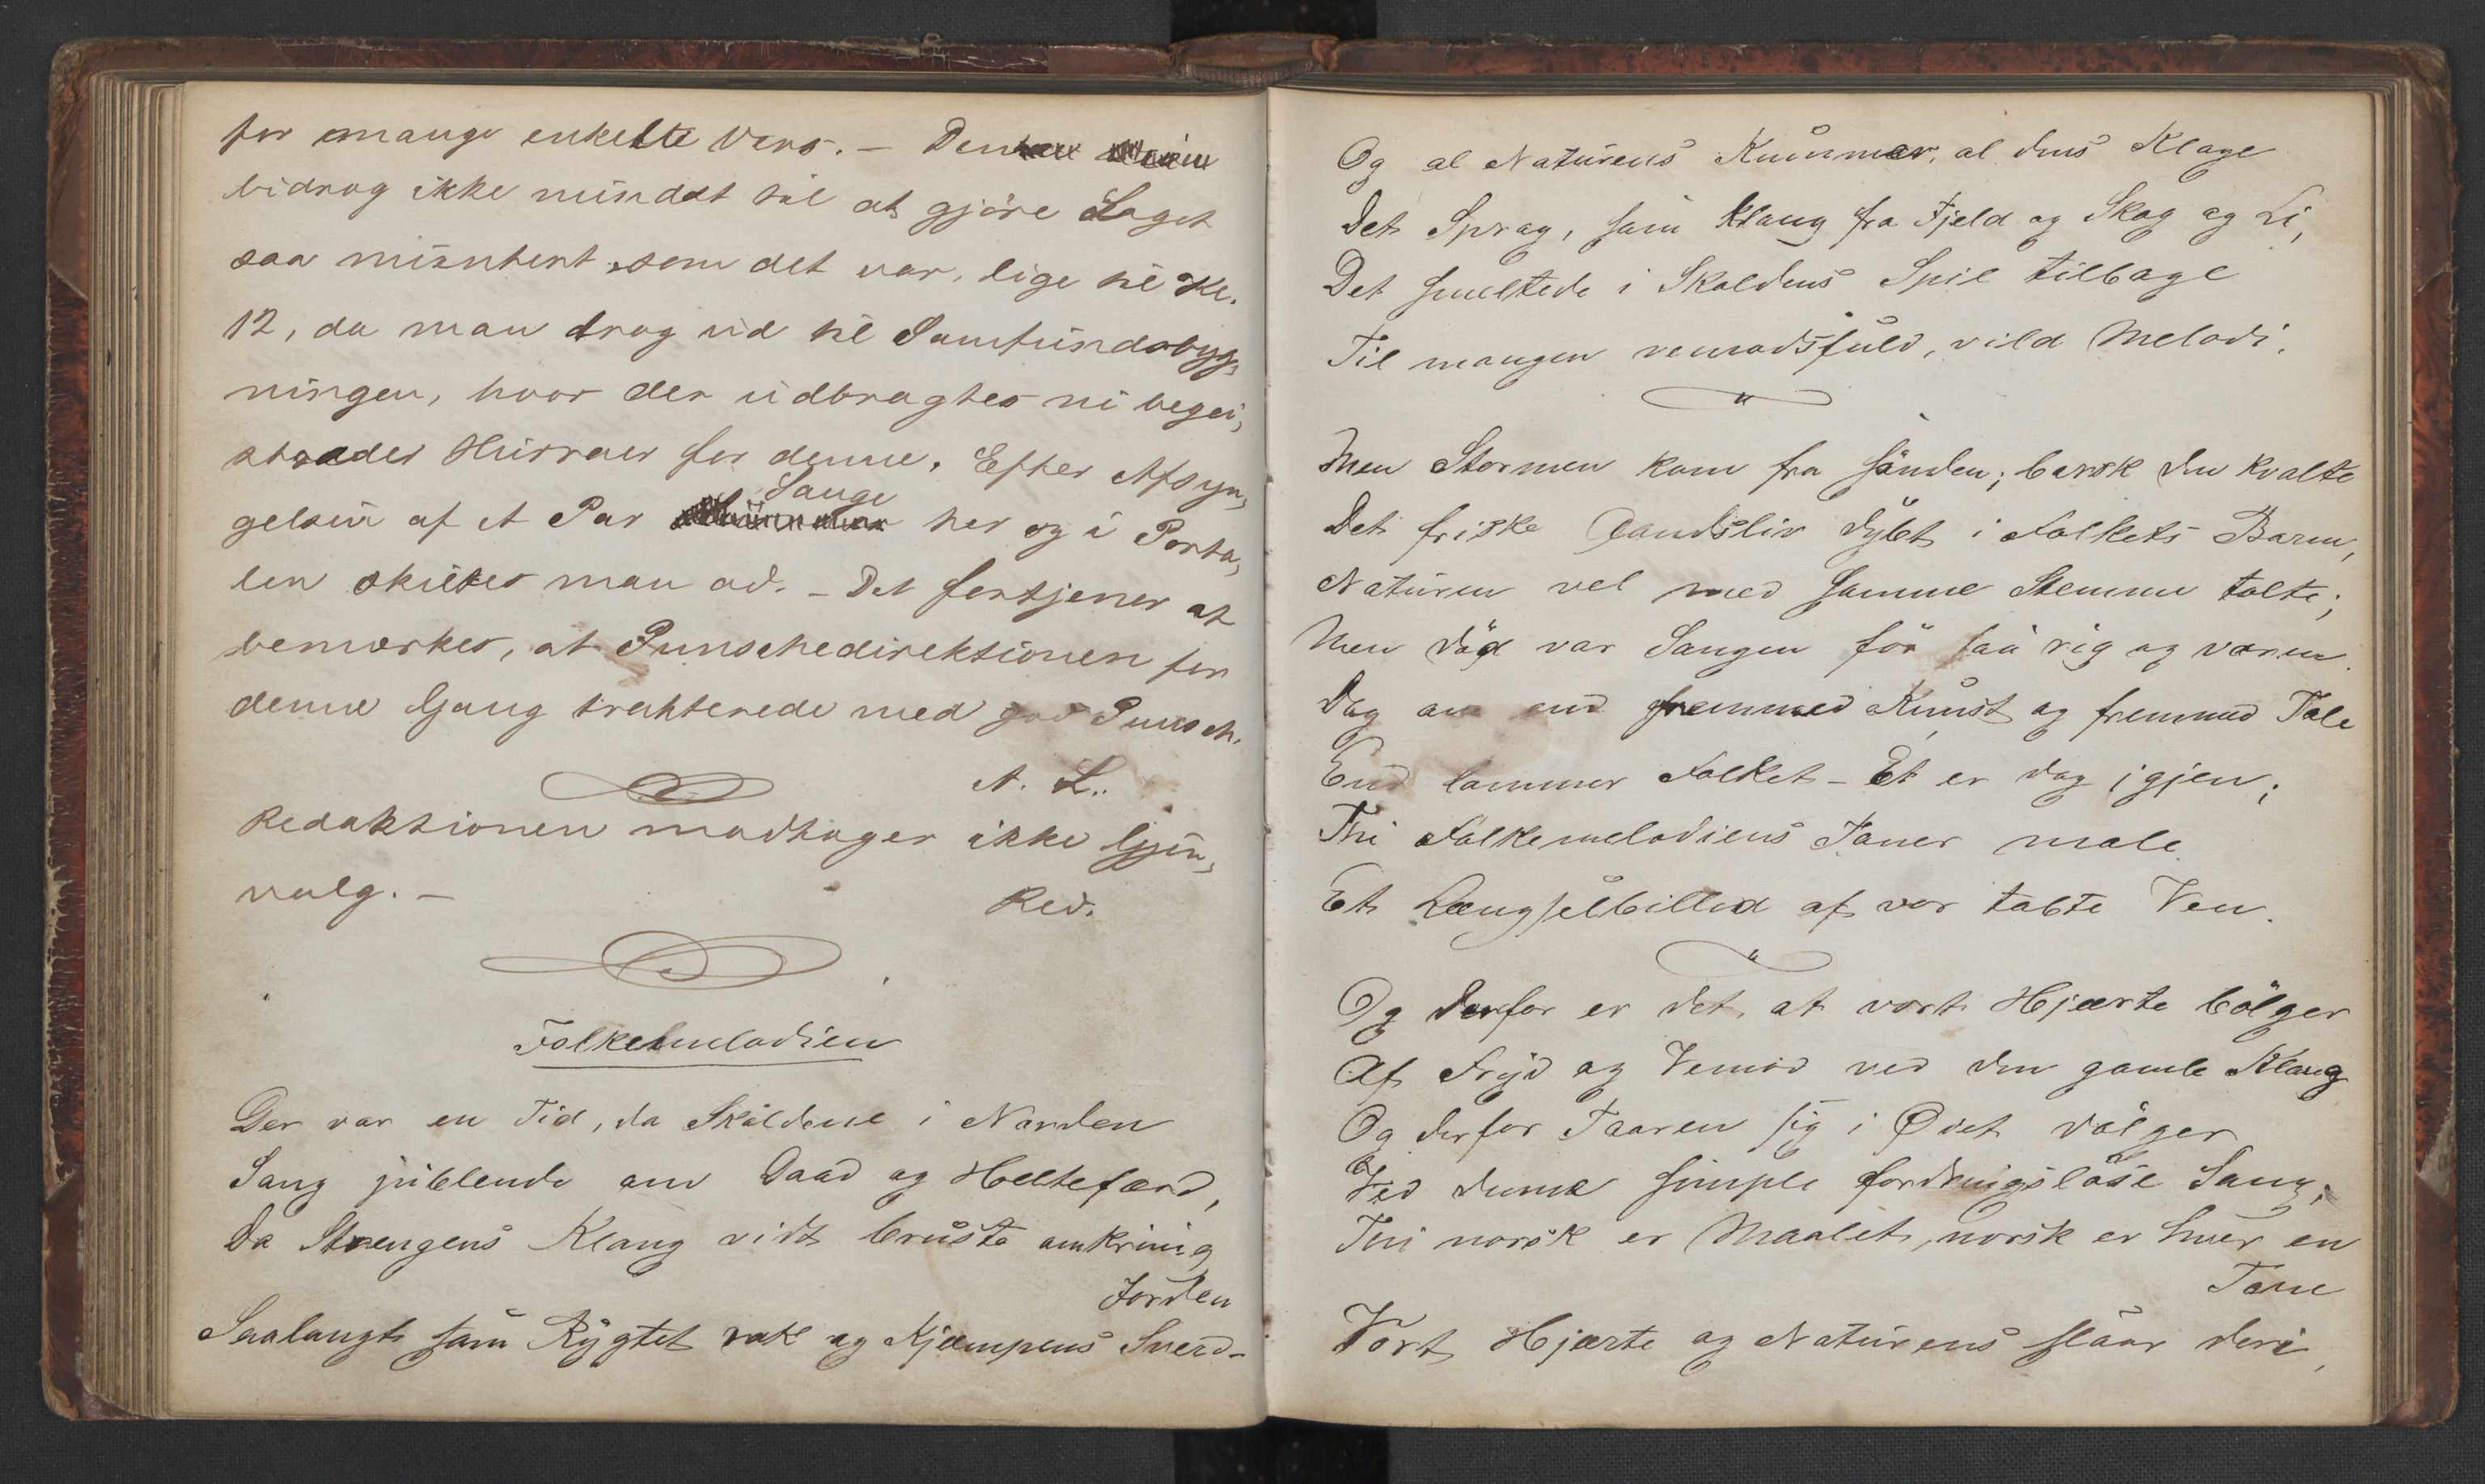 for mange enkelte Vers. – Den
bidrog ikke mindst til at gjöre Laget
saa muntert som det var, lige til Kl.
12, da man drog ud til Samfundsbyg-
ningen, hvor der udbragtes ni begei-
strede Hurraer for denne. Efter Afsyn-
gelsen af et Par Sange her og i Porta-
len skiltes man ad. – Det fortjener at
bemærkes, at Punschedirektionen for
denne Gang trakterede med god Punsch.
A. L.
Redaktionen modtager ikke Gjen-
valg. –
Red.
Folkemelodien
Der var en Tid, da Skaldene i Norden
Sang jublende om Daad og Heltefærd,
Da Strengens Klang vidt bruste omkring
Jorden
Saalangt som Rygtet rak og Kjæmpens Sverd –
Og al Naturens Kummer, al dens Klage
Det Sprog, som klang fra Fjeld og Skog og Li,
Det smeltede i Skaldens Spil tilbage
Til mangen vemodsfuld, vild Melodi.
Men Stormen kom fra sönden; barsk den kvalte
Det friske Aandsliv dybt i Folkets Barm,
Naturen vel med samme Stemme talte;
Men död var Sangen för saa rig og varm.
Dog om end fremmed Kunst og fremmed Tale
End lammer Folket – Et er dog igjen;
Thi Folkemelodiens Toner male
Et Længselbilled af vor tabte Ven.
Og derfor er det, at vort Hjærte bölger
Af Fryd og Vemod ved den gamle Klang
Og derfor Taaren sig i Øiet dölger
Ved denne simple fordringslöse Sang;
Thi norsk er Maalet, norsk er hver en
Tone
Vort Hjærte og Naturens slaar deri,